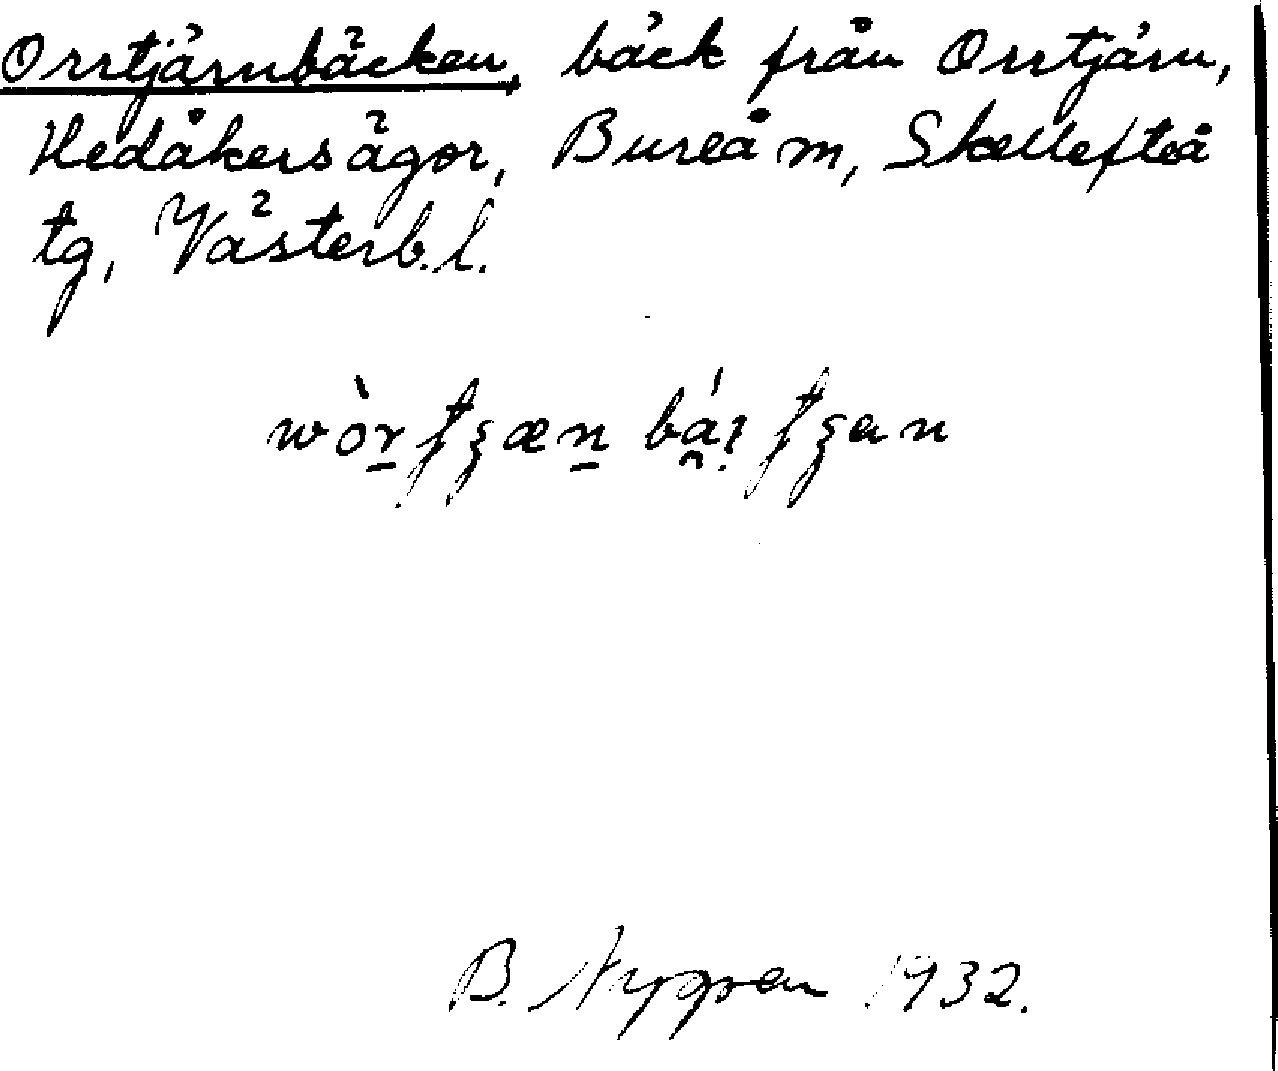 Orrtjärnbäcken, bäck från Orrtjärn,
Hedåkersägor, Bureå m, Skellefteå
tg, Västerb.l.
B. Nygren 1932.